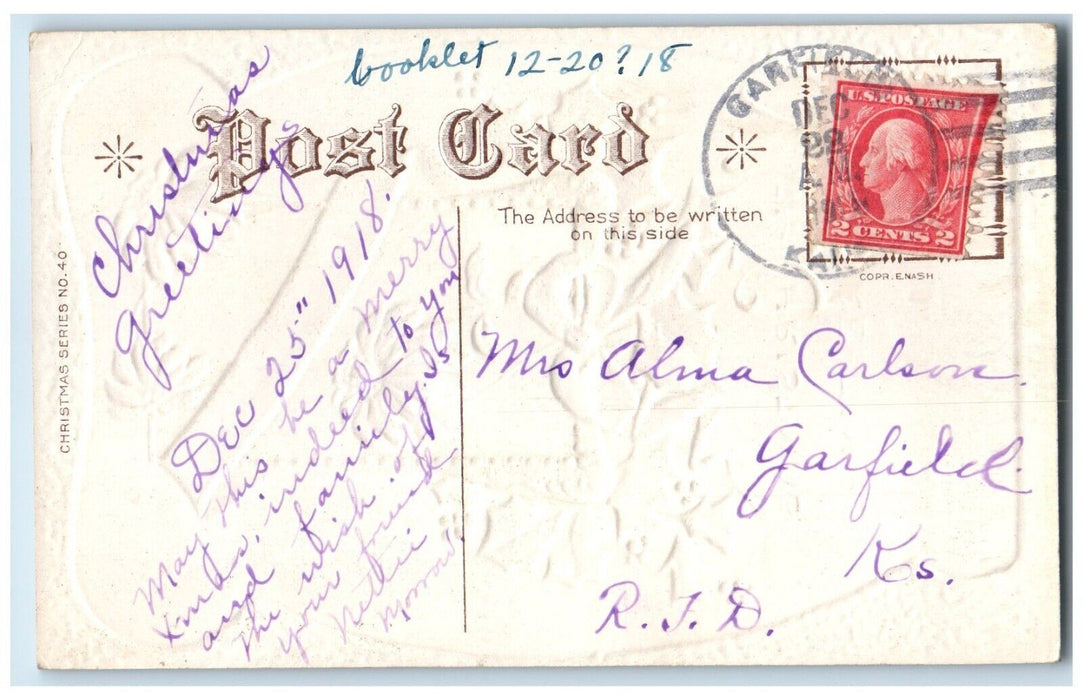 booklet 12-20? 18
Post Card
Christmas
greetings
Dec 25" 1918.
May this be a merry
Xmas, indeed to you
and family. Is
the wish of
your friend
Nettie
CHRISTMAS SERIES NO. 40
The Address to be written
on this side
GARFIELD
DEC
28
KANS
U.S. POSTAGE
2 CENTS 2
COPR. E.NASH
Mrs Alma Carlson.
Garfield
Ks.
R.F.D.